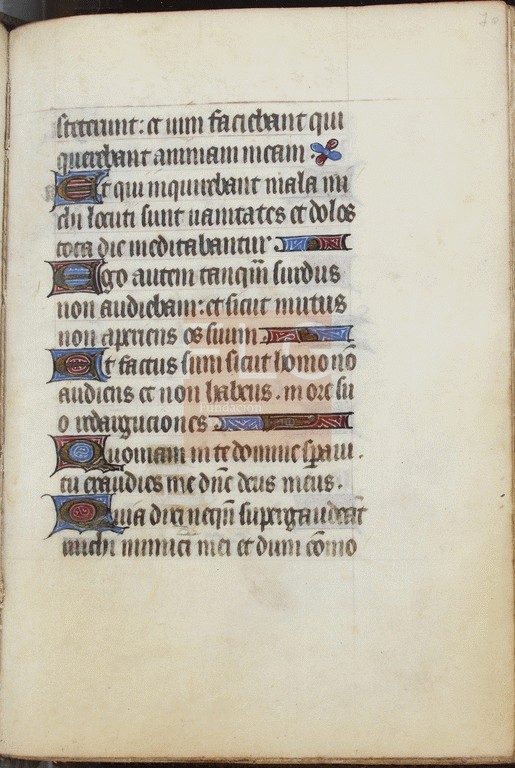 70
steterunt: et uim faciebant qui
querebant animam meam
Et qui inquirebant mala mi
chi locuti sunt uanitates et dolos
tota die meditabantur
Ego autem tanqm̄ surdus
non audiebam: et sicut mutus
non aperiens os suum
Et factus sum sicut homo nō
audiens et non habens . in ore su
o redargutiones
Quoniam in te domine speraui .
tu exaudies me dn̄e deus meus .
Quia dixi neqn̄ supergaudeāt
michi inimici mei et dum cōmo
Fundación